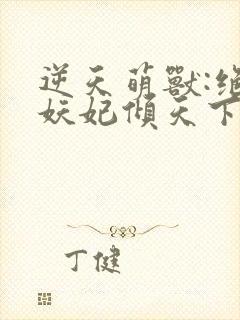 逆天萌獸:絕
妖妃傾天下
丁健